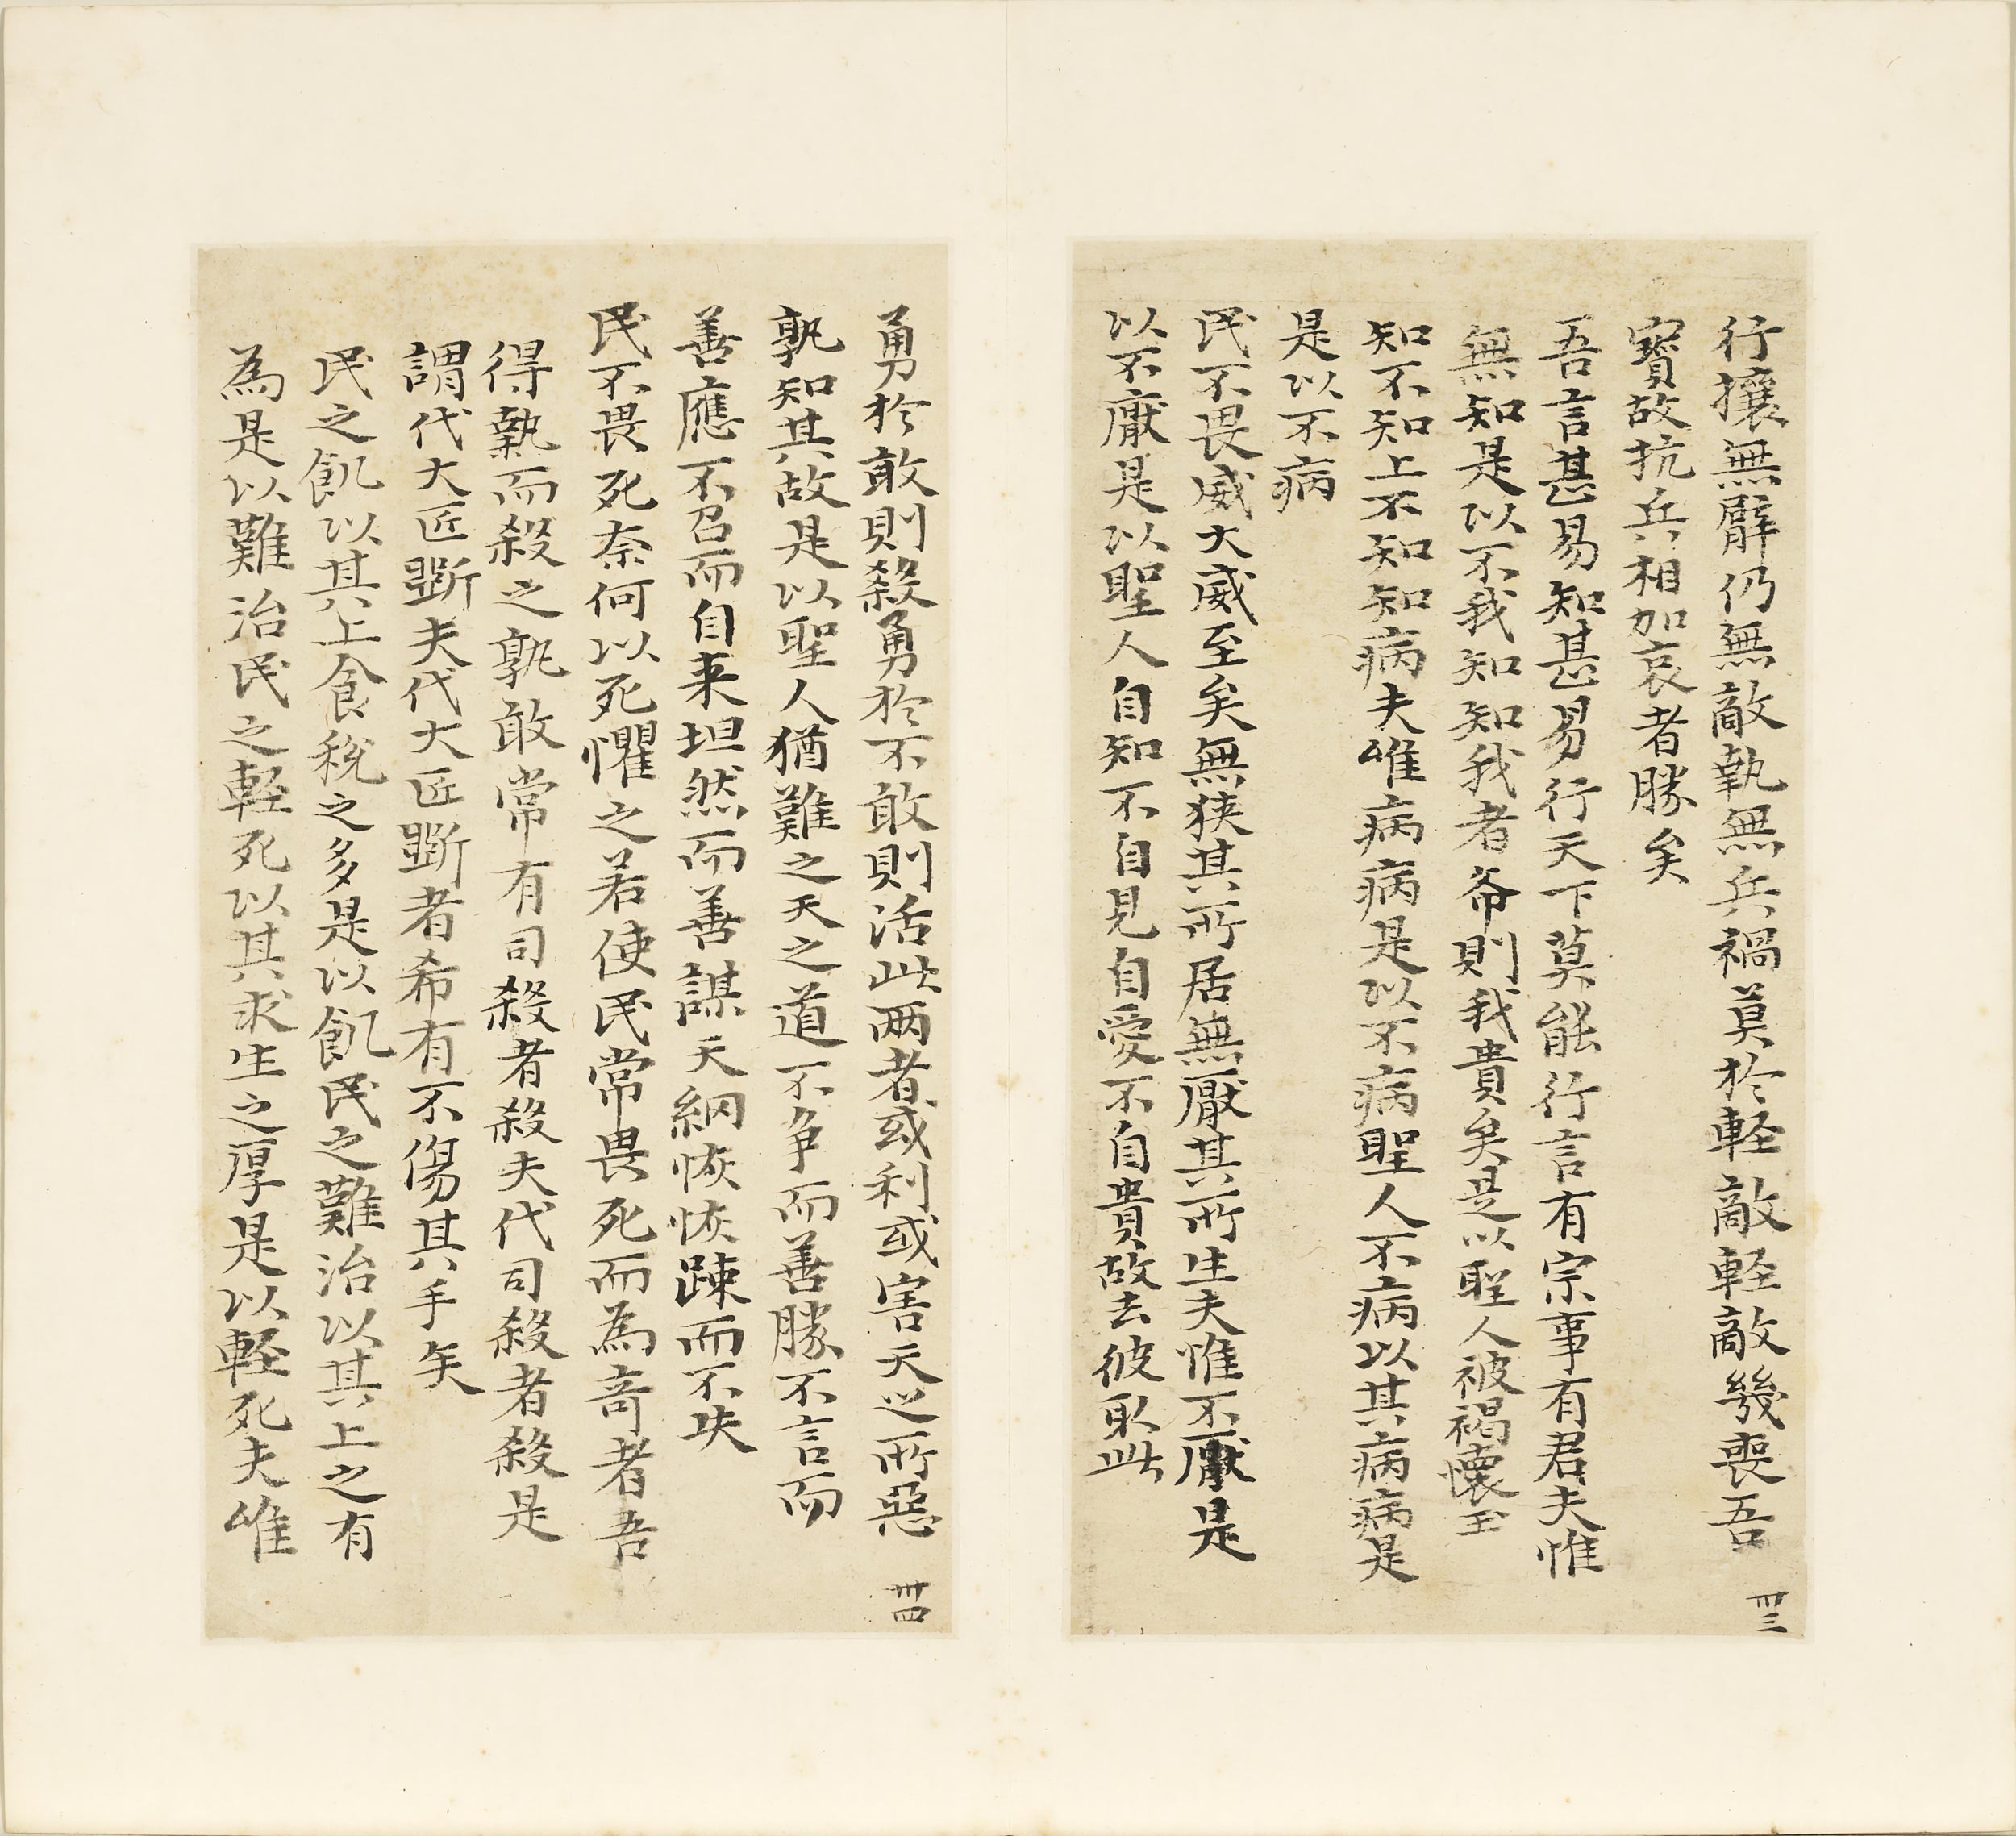 行攘無臂仍無敵執無兵禍莫於軽敵軽敵幾喪吾
卅三
寳故抗兵相加哀者勝矣
吾言甚易知甚易行天下莫能行言有宗事有君夫惟
無知是以不我知知我者希則我貴矣是以聖人被褐懐玉
知不知上不知知病夫唯病病是以不病聖人不病以其病病是
是以不病
民不畏威大威至矣無狭其所居無厭其所生夫惟不厭是
以不厭是以聖人自知不自見自愛不自貴故去彼取此
勇於敢則殺勇於不敢則活此两者或利或害天之所惡
卅四
孰知其故是以聖人猶難之天之道不争而善勝不言而
善應不召而自来坦然而善謀天網恢恢踈而不失
民不畏死奈何以死懼之若使民常畏死而為竒者吾
得執而殺之孰敢常有司殺者殺夫代司殺者殺是
謂代大匠斲夫代大匠斲者希有不傷其手矣
民之飢以其上食税之多是以飢民之難治以其上之有
為是以難治民之軽死以其求生之厚是以軽死夫唯